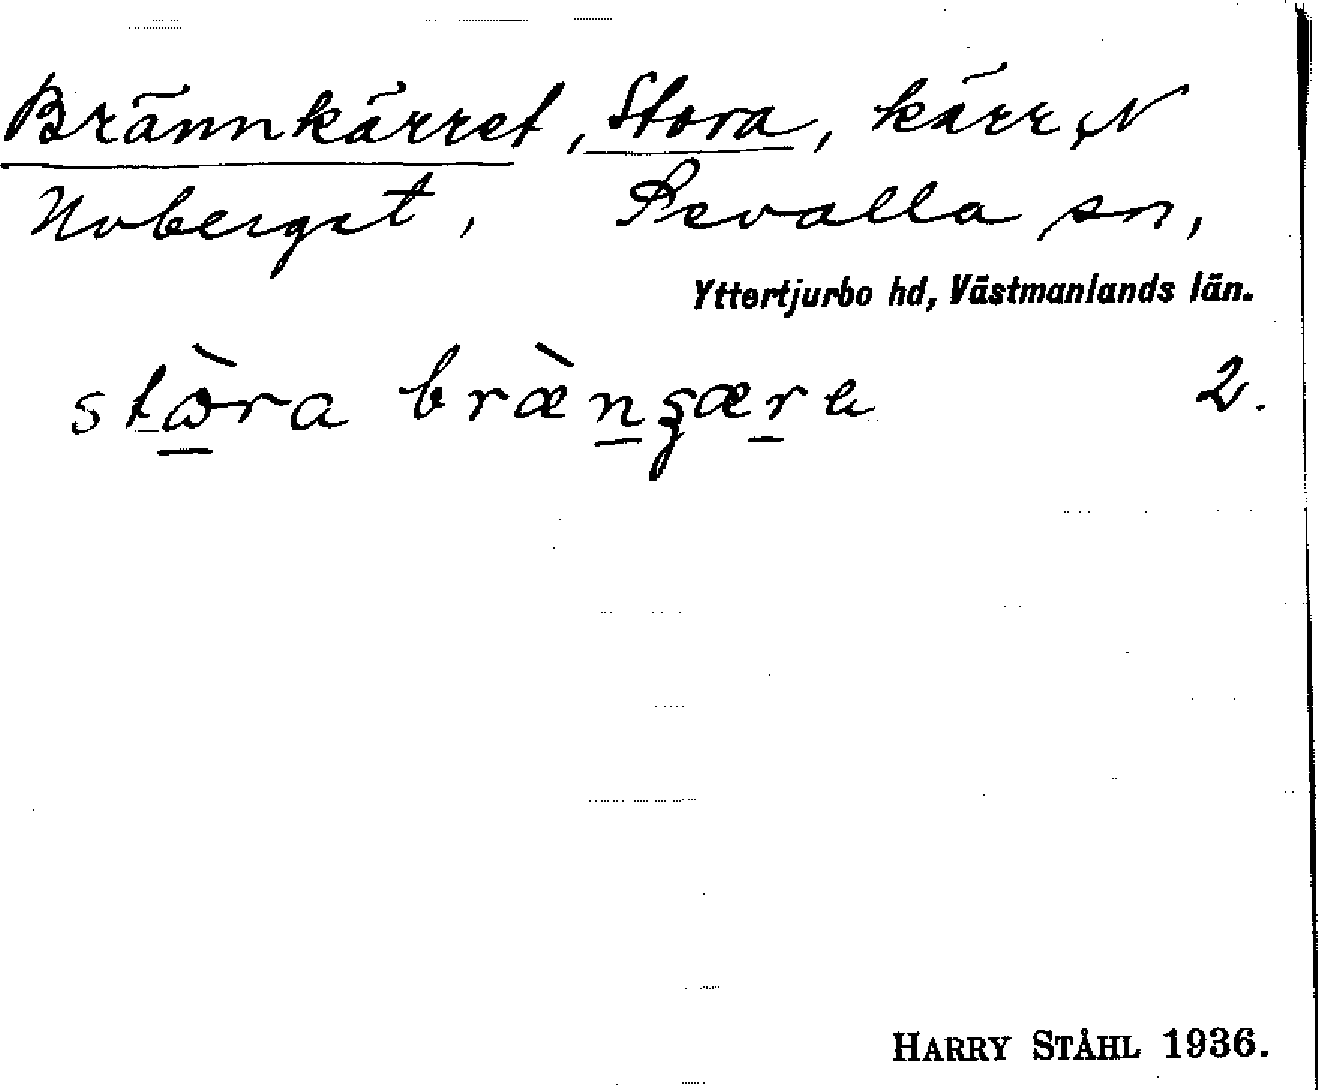 Brännkärret, Stora, kärr, N
Noberget, Sevalla sn,
Yttertjurbo hd, Västmanlands län.
stɷ̀ra bræ̀nʂæra 2.
HARRY STÅHL 1936.